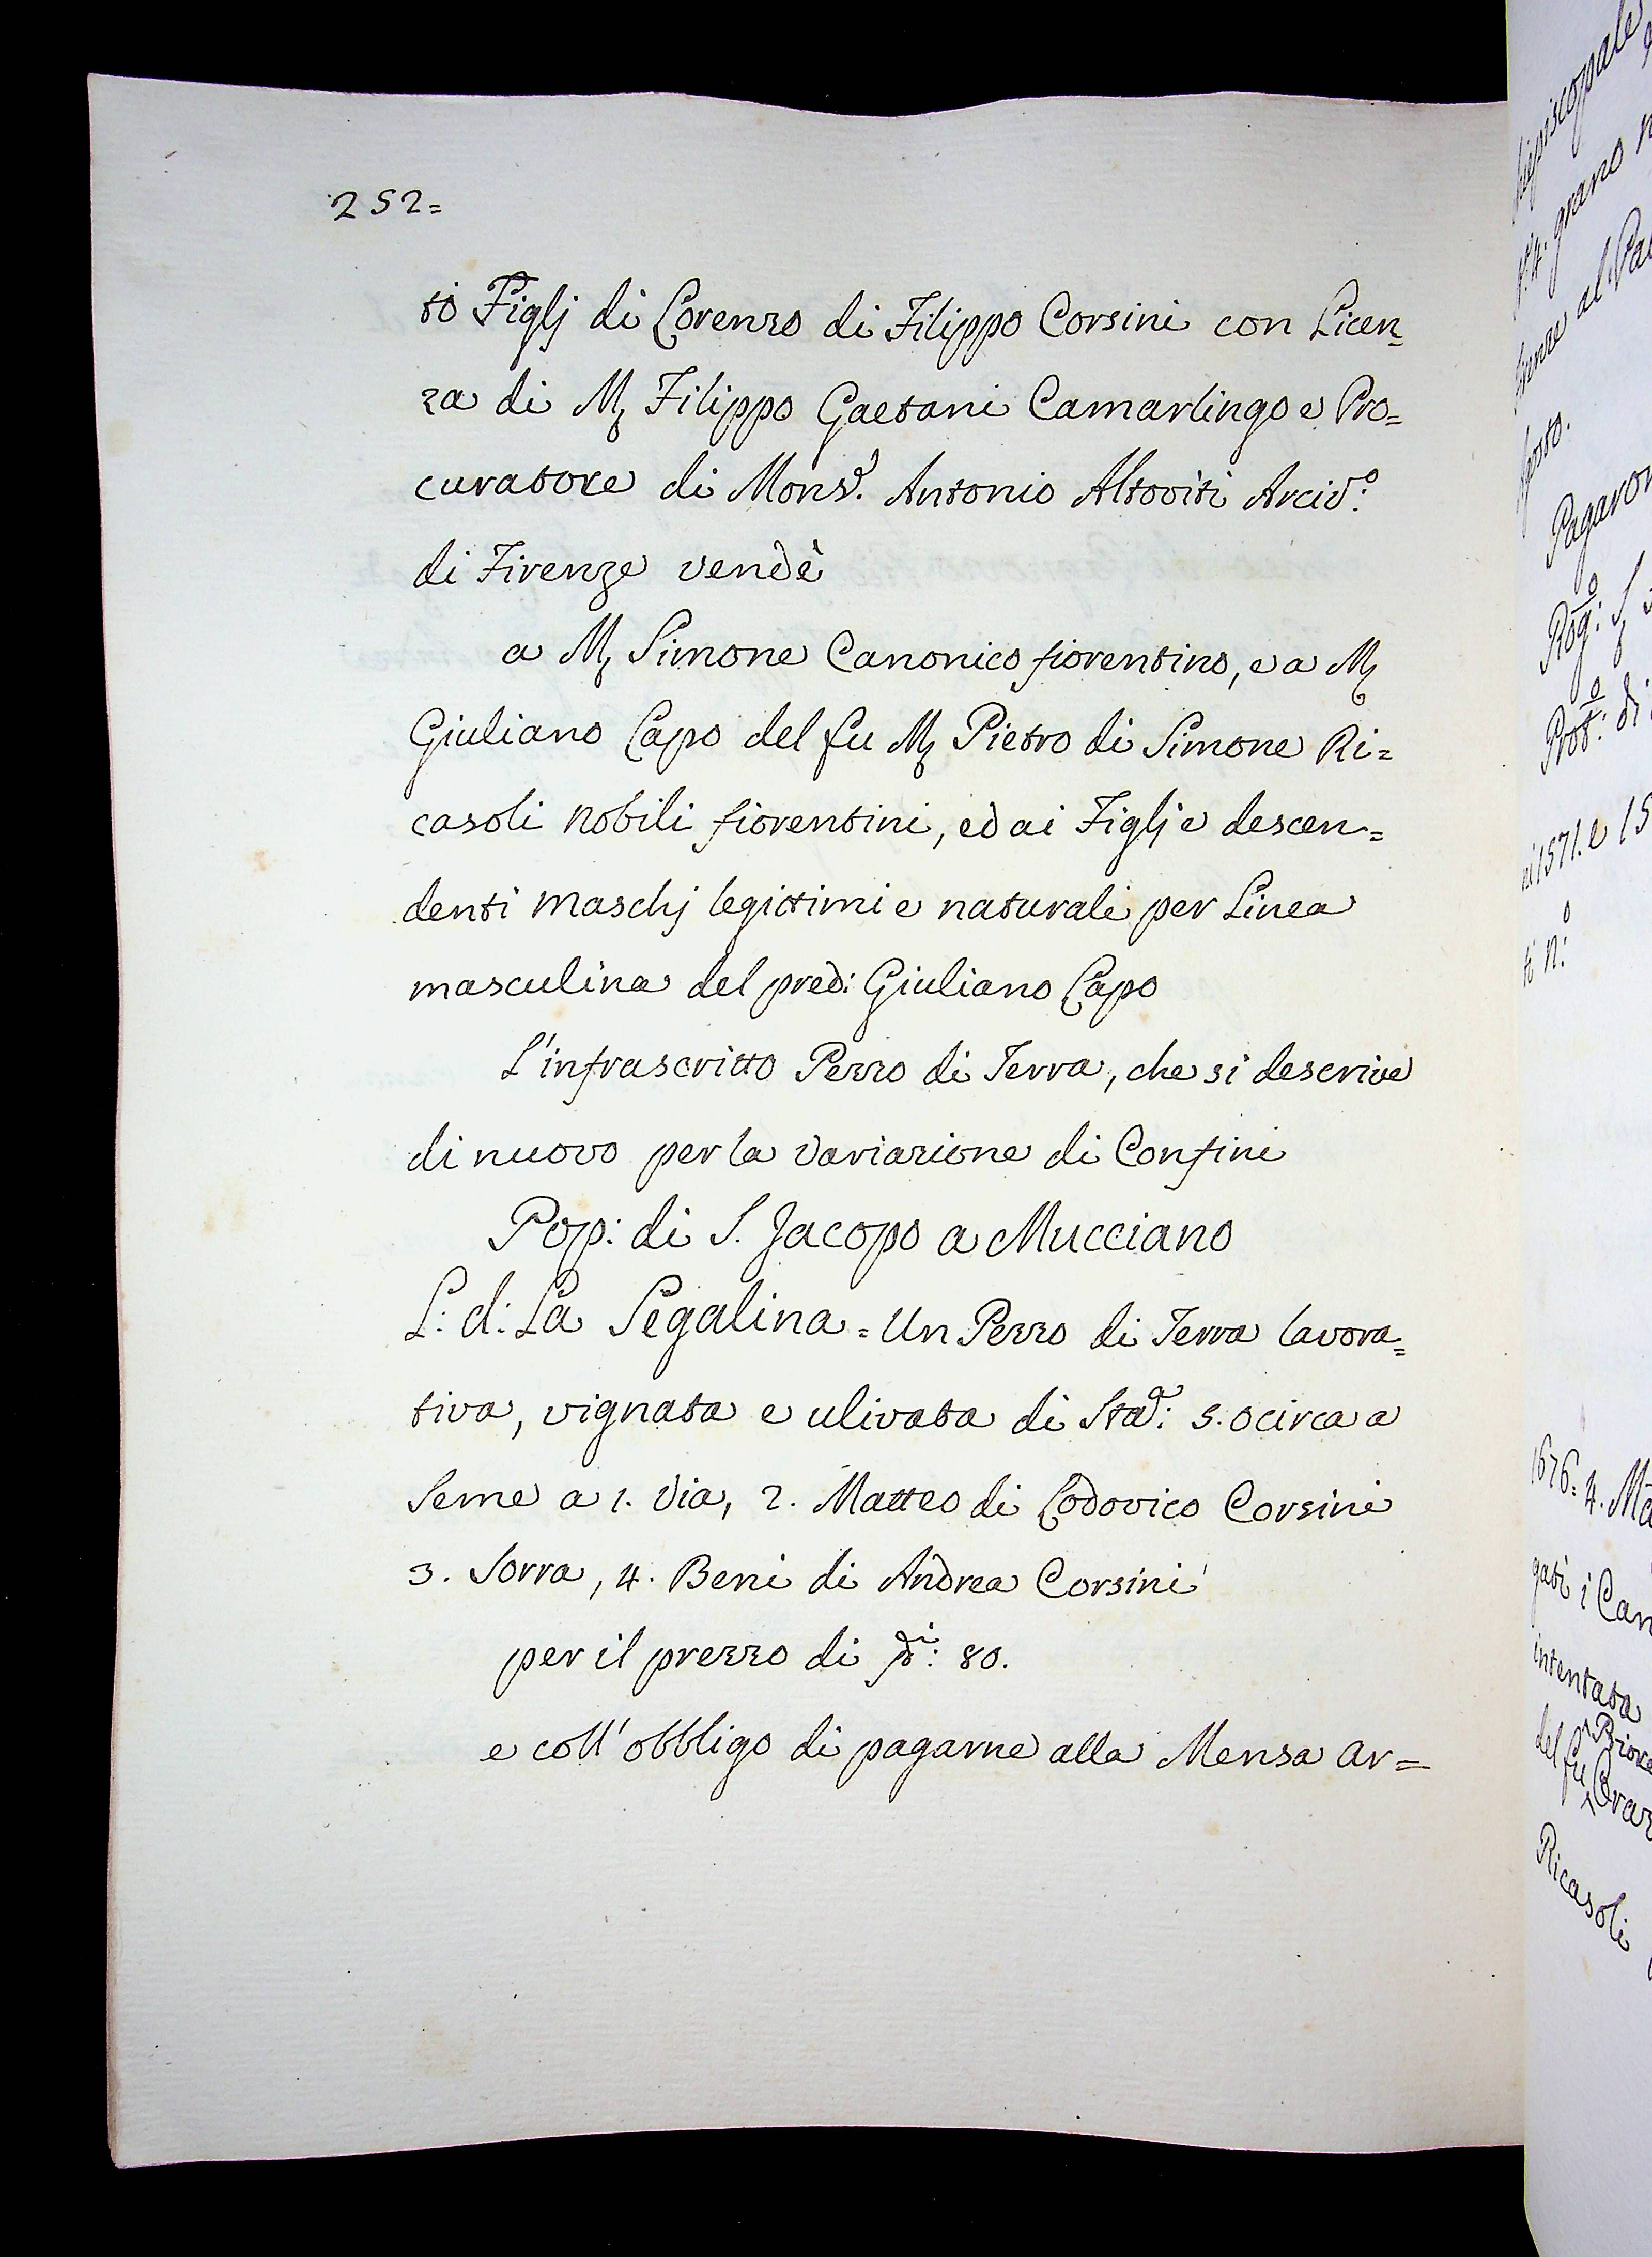 252=
ti Figlj di Lorenzo di Filippo Corsini con Licen=
za di M. Filippo Gaetani Camarlingo e Pro=
curatore di Monsr. Antonio Altoviti Arcivo.
di Firenze vendè
a M. Simone Canonico fiorentino, e a M.
Giuliano Capo del fu M. Pietro di Simone Ri=
casoli nobili fiorentini, ed ai Figlj e descen=
denti maschj legittimi e naturali per Linea
masculina del pred: Giuliano Capo
L'infrascritto Pezzo di Terra, che si descrive
di nuovo per la variazione di Confini
Pop: di S. Jacopo a Mucciano
L: d: La Segalina = Un Pezzo di Terra lavora=
tiva, vignata e ulivata di Staa: 5. o circa a
Seme a 1. Via, 2. Matteo di Lodovico Corsini
3. Sorra, 4. Beni di Andrea Corsini
per il prezzo di 80.
e coll' obbligo di pagarne alla Mensa ar=
grano
Pagaron
Rogo:
Proto: di
1571. e 15
n:o
1676: 4. Ma
gati i Can
intentata
del fu
Ricasoli